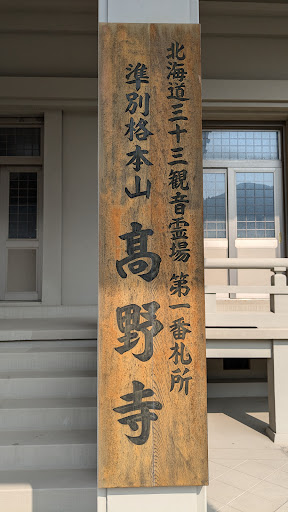 北海道三十三観音霊場 第一番札所
準別格本山
髙野寺